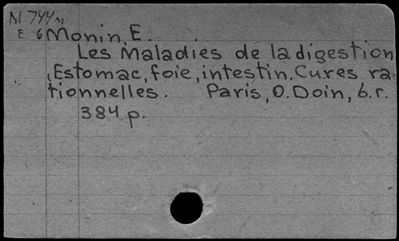 N 744 M
E 6 Monin, E.
Les Maladies de la digestion
Estomac, foie, intestin. Cures ra
tionnelles. Paris, O. Doin, b.r.
384 p.